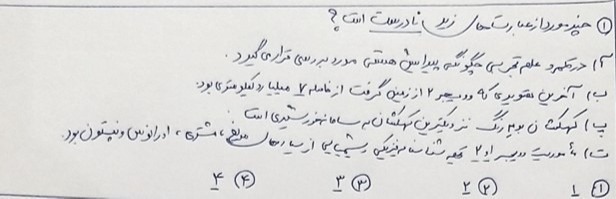 ① چند مورد از عبارت‌های زیر نادرست است؟
آ) در قلمرو علم تجربی چگونگی پیدایش هستی مورد بررسی قرار می‌گیرد.
ب) آخرین تصویری که وویجر ۲ از زمین گرفت از فاصله ۷ میلیارد کیلومتری بود.
پ) کهکشان نزدیکترین کهکشان به سامانه خورشیدی است.
ت) مأموریت وویجر ۱ و ۲ تهیه شناسنامه فیزیکی شیمیایی از سیاره‌های مشتری، اورانوس و نپتون بود.
① ۱ ② ۲ ③ ۳ ④ ۴